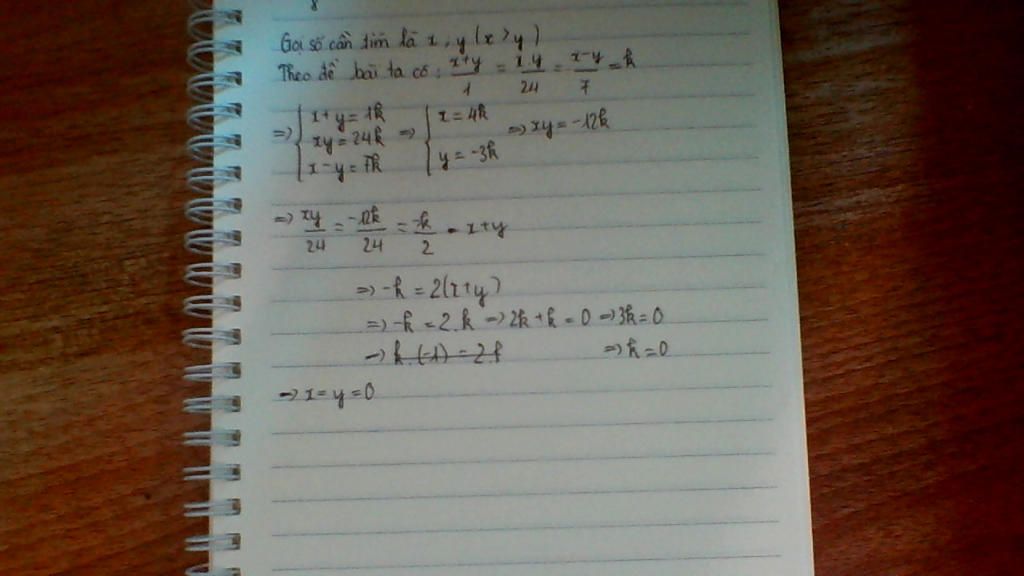 8
Gọi số cần tìm là x, y (x > y)
Theo đề bài ta có: x+y/1 = x.y/24 = x-y/7 = k
=> { x+y = 1k
xy = 24k
x-y = 7k => { x = 4k
y = -3k => xy = -12k
=> xy/24 = -12k/24 = -k/2 = x+y
=> -k = 2(x+y)
=> -k = 2.k => 2k + k = 0 => 3k = 0
=> k.(-1) = 2k => k = 0
=> x = y = 0